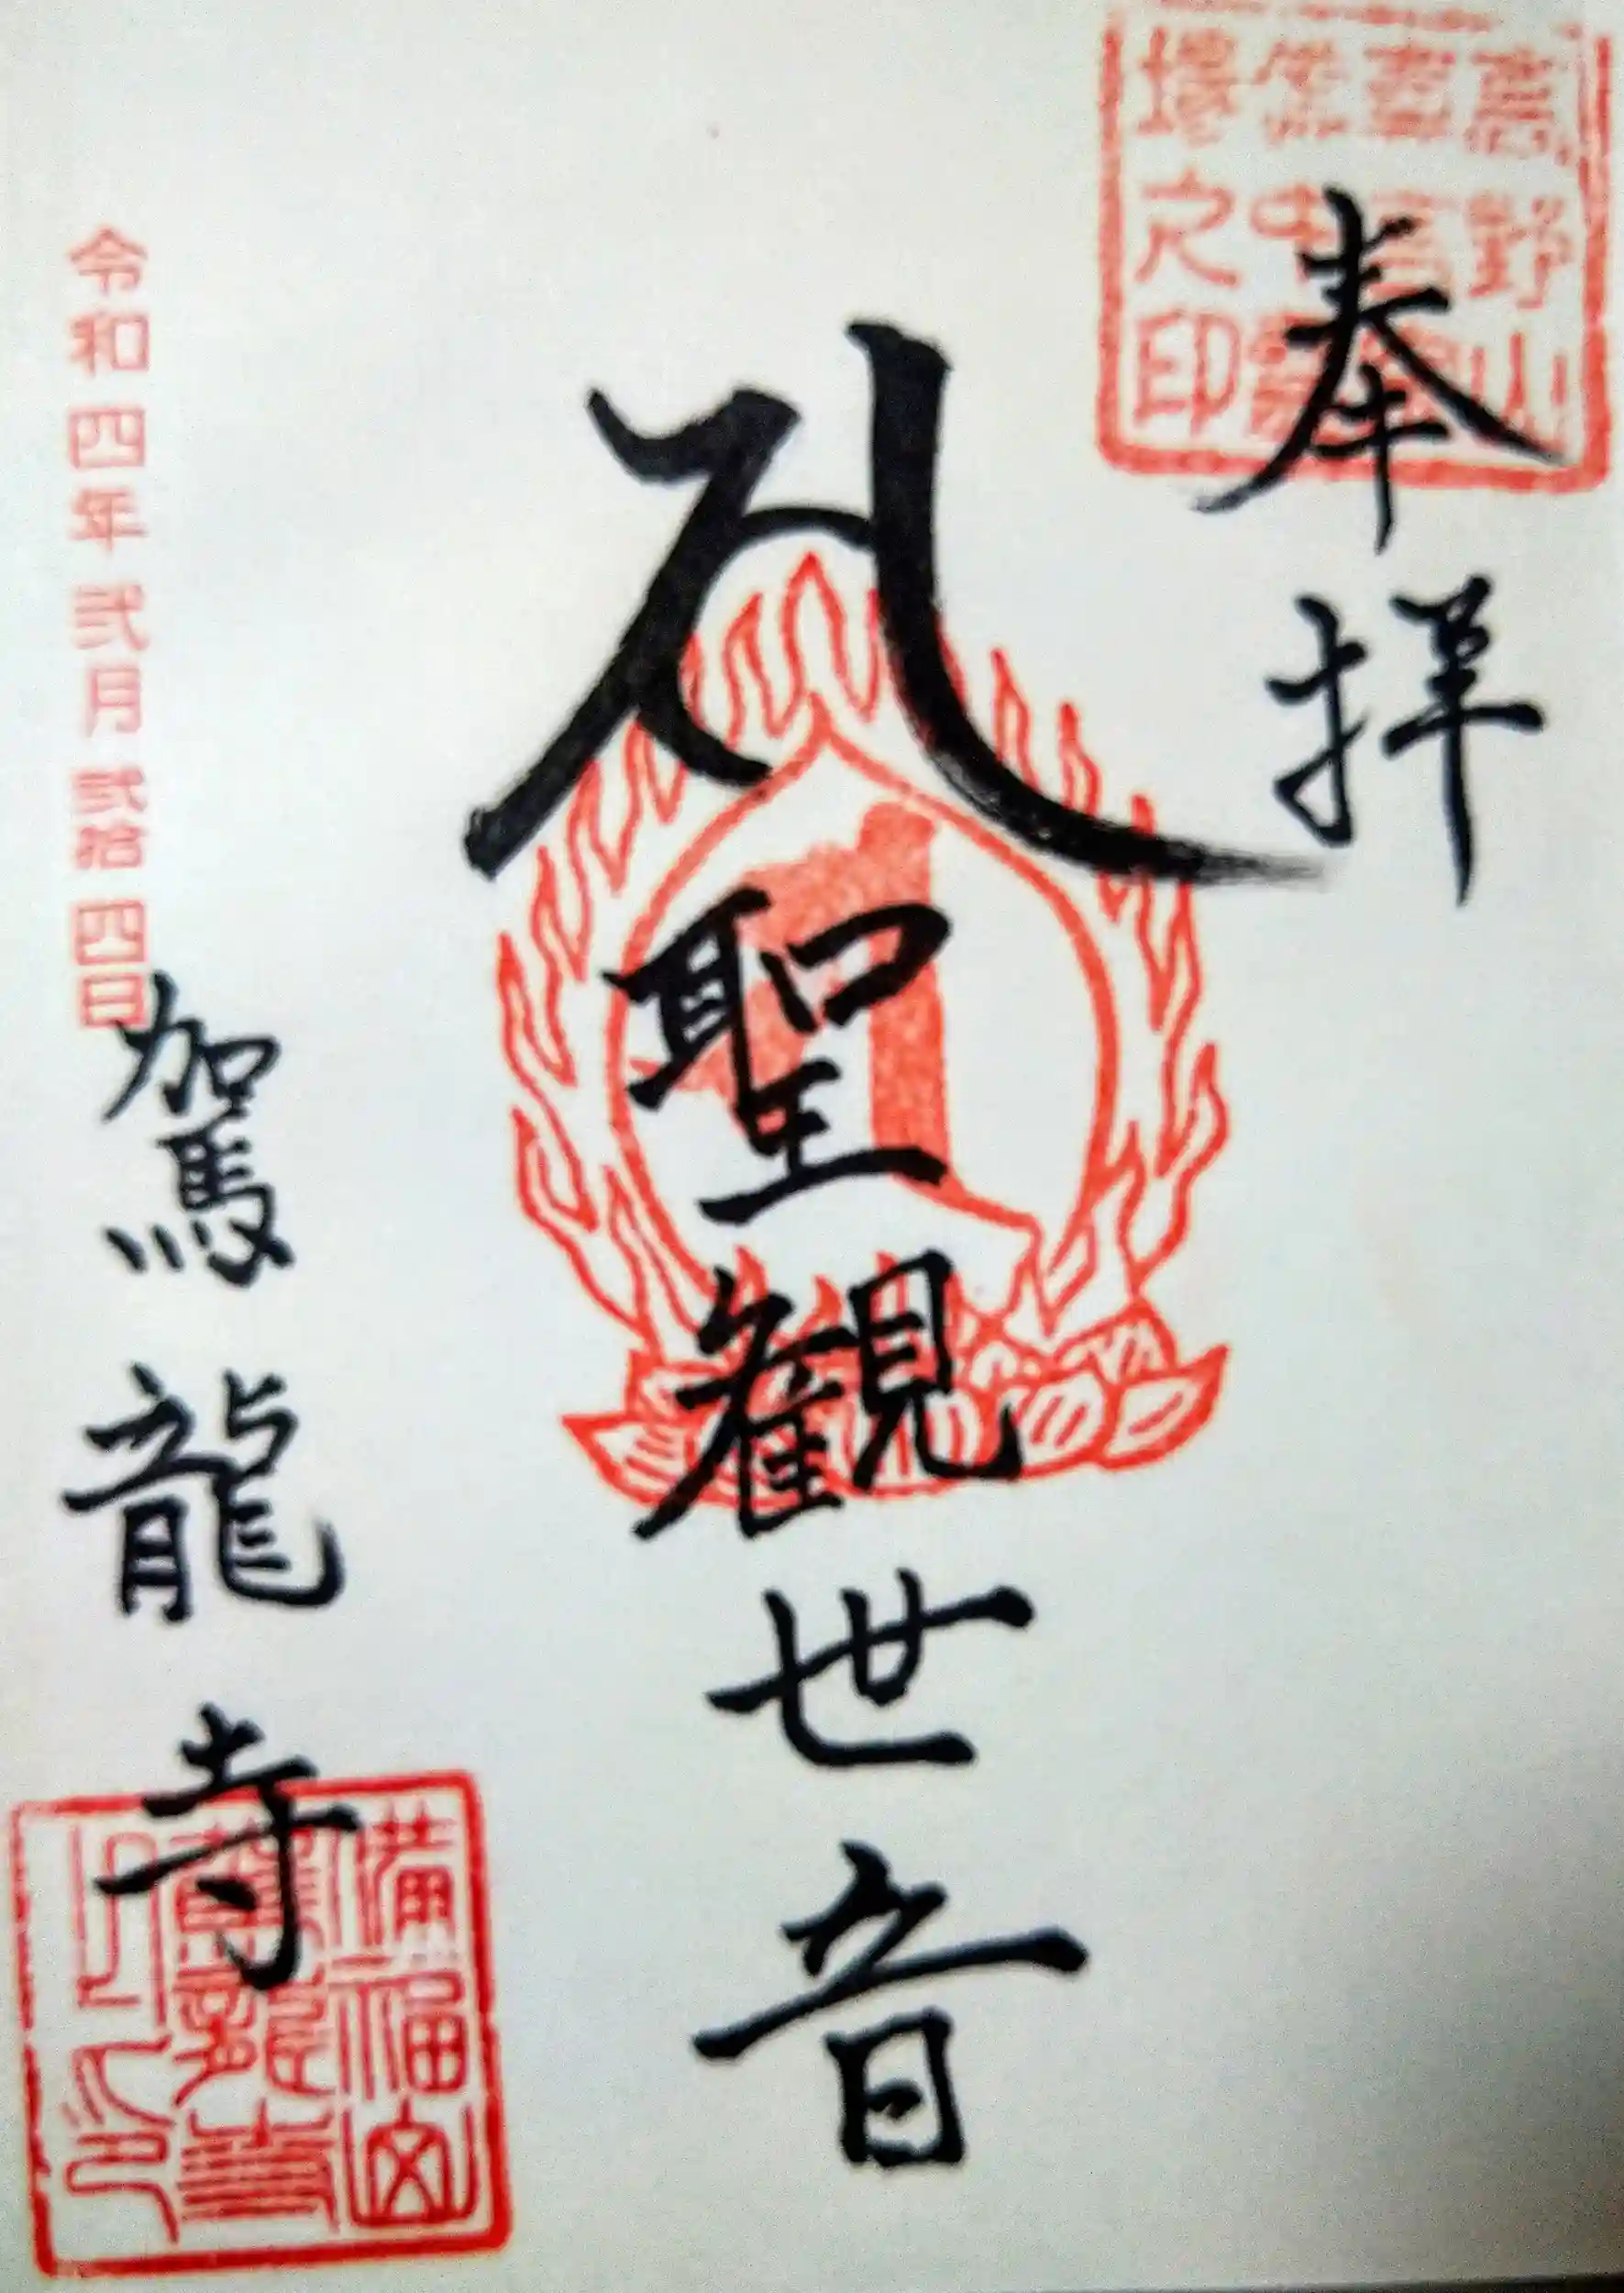 奉拝
高野山
場之印
サ
聖観世音
令和四年弐月弐拾四日
駕龍寺